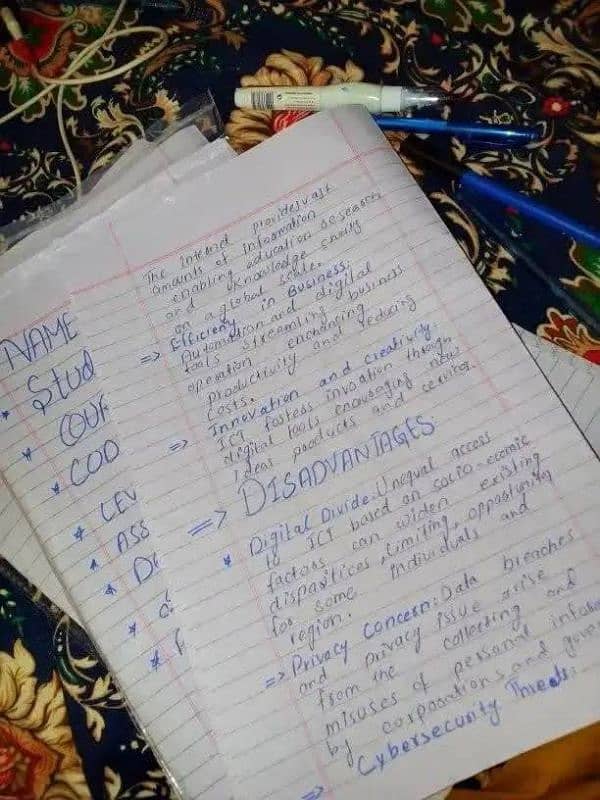 The Internet provides vast
amounts of Information
enabling education research
and knowledge
on a global scale.
=> Efficieny in Business:
Automation and digital
tools streamling business
operation enhancing
productivity and reducing
costs.
=> Innovation and creativity:
ICT fostess invoation through
digital tools encouraging new
Ideas products and
=> DISADVANTAGES
* Digital Divide: Unequal access
to ICT based on socio-ecomic
factors can widen existing
limiting, oppostuning
for some individuals and
region.
=> Privacy Concern: Data breaches
and privacy issue arise
from the collecting and
misuses of personal
by corporations and
=> Cybersecurity
NAME
* Stud
*
* COD
* LEV
* ASS
*
*
*